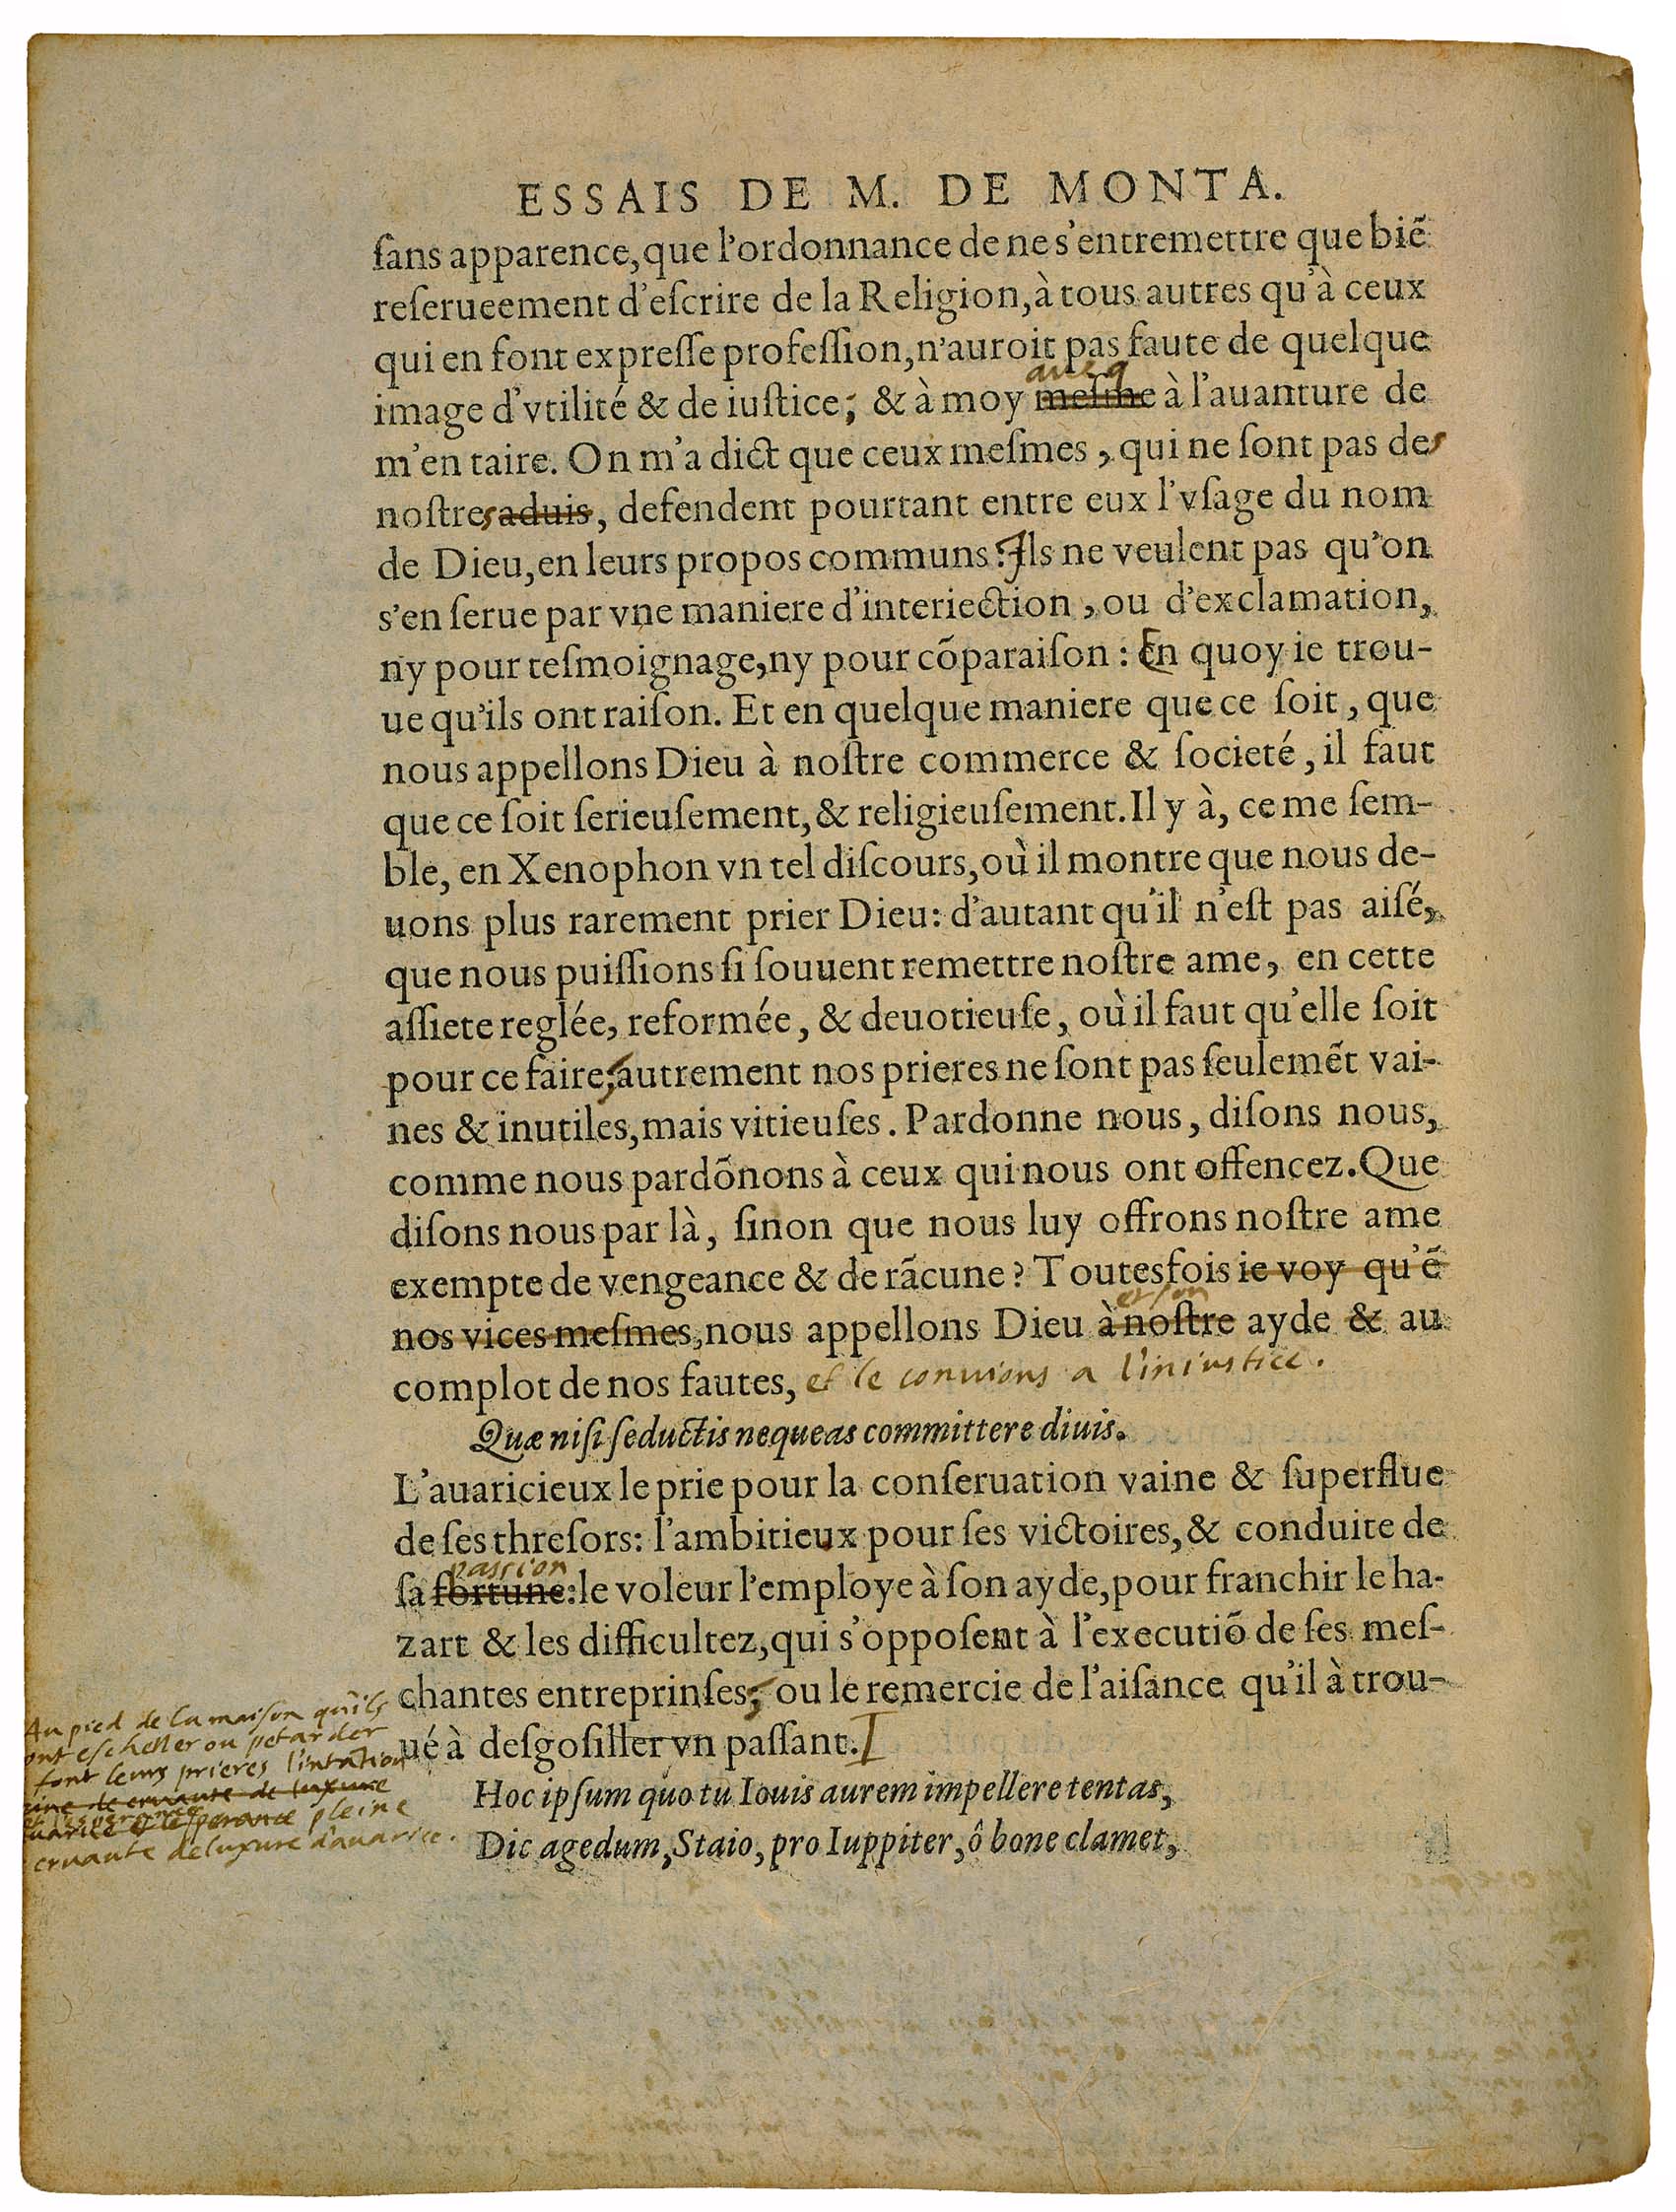 ESSAIS DE M. DE MONTA.
ſans apparence, que l'ordonnance de ne s'entremettre que biẽ
reſerueement d'eſcrire de la Religion, à tous autres qu'à ceux
qui en font expreſſe profeſſion, n'auroit pas faute de quelque
aueq
image d'vtilité & de iuſtice; & à moy meſme à l'auanture de
m'en taire. On m'a dict que ceux meſmes, qui ne ſont pas des
noſtres aduis, defendent pourtant entre eux l'vſage du nom
de Dieu, en leurs propos communs. Ils ne veulent pas qu'on
s'en ſerue par vne maniere d'interiection, ou d'exclamation,
ny pour teſmoignage, ny pour cõparaiſon: En quoy ie trou-
ue qu'ils ont raiſon. Et en quelque maniere que ce ſoit, que
nous appellons Dieu à noſtre commerce & ſocieté, il faut
que ce ſoit ſerieuſement, & religieuſement. Il y à, ce me ſem-
ble, en Xenophon vn tel diſcours, où il montre que nous de-
uons plus rarement prier Dieu: d'autant qu'il n'eſt pas aiſé,
que nous puiſſions ſi ſouuent remettre noſtre ame, en cette
aſſiete reglée, reformée, & deuotieuſe, où il faut qu'elle ſoit
pour ce faire, autrement nos prieres ne ſont pas ſeulemẽt vai-
nes & inutiles, mais vitieuſes. Pardonne nous, diſons nous,
comme nous pardõnons à ceux qui nous ont offencez. Que
diſons nous par là, ſinon que nous luy offrons noſtre ame
exempte de vengeance & de rãcune? Toutesfois ie voy qu'ẽ
et ſon
nos vices meſmes, nous appellons Dieu à noſtre ayde & au
complot de nos fautes, et le conuions a l'iniustice.
Quæ niſi ſeductis nequeas committere diuis.
L'auaricieux le prie pour la conſeruation vaine & ſuperflue
de ſes threſors: l'ambitieux pour ſes victoires, & conduite de
passion
ſa fortune: le voleur l'employe à ſon ayde, pour franchir le ha-
zart & les difficultez, qui s'oppoſent à l'executiõ de ſes meſ-
chantes entreprinſes, ou le remercie de l'aiſance qu'il à trou-
ué à deſgoſiller vn paſſant. I
Au pied de la maiſon qu'ils
ont escheller ou petarder
font leurs prieres l'intãtion
ine de cruaute de luxure
et lesperance
uarice et lesperance pleine
cruaute de luxure d'auarice.
Hoc ipſum quo tu Iouis aurem impellere tentas,
Dic agedum, Staio, pro Iuppiter, ô bone clamet,